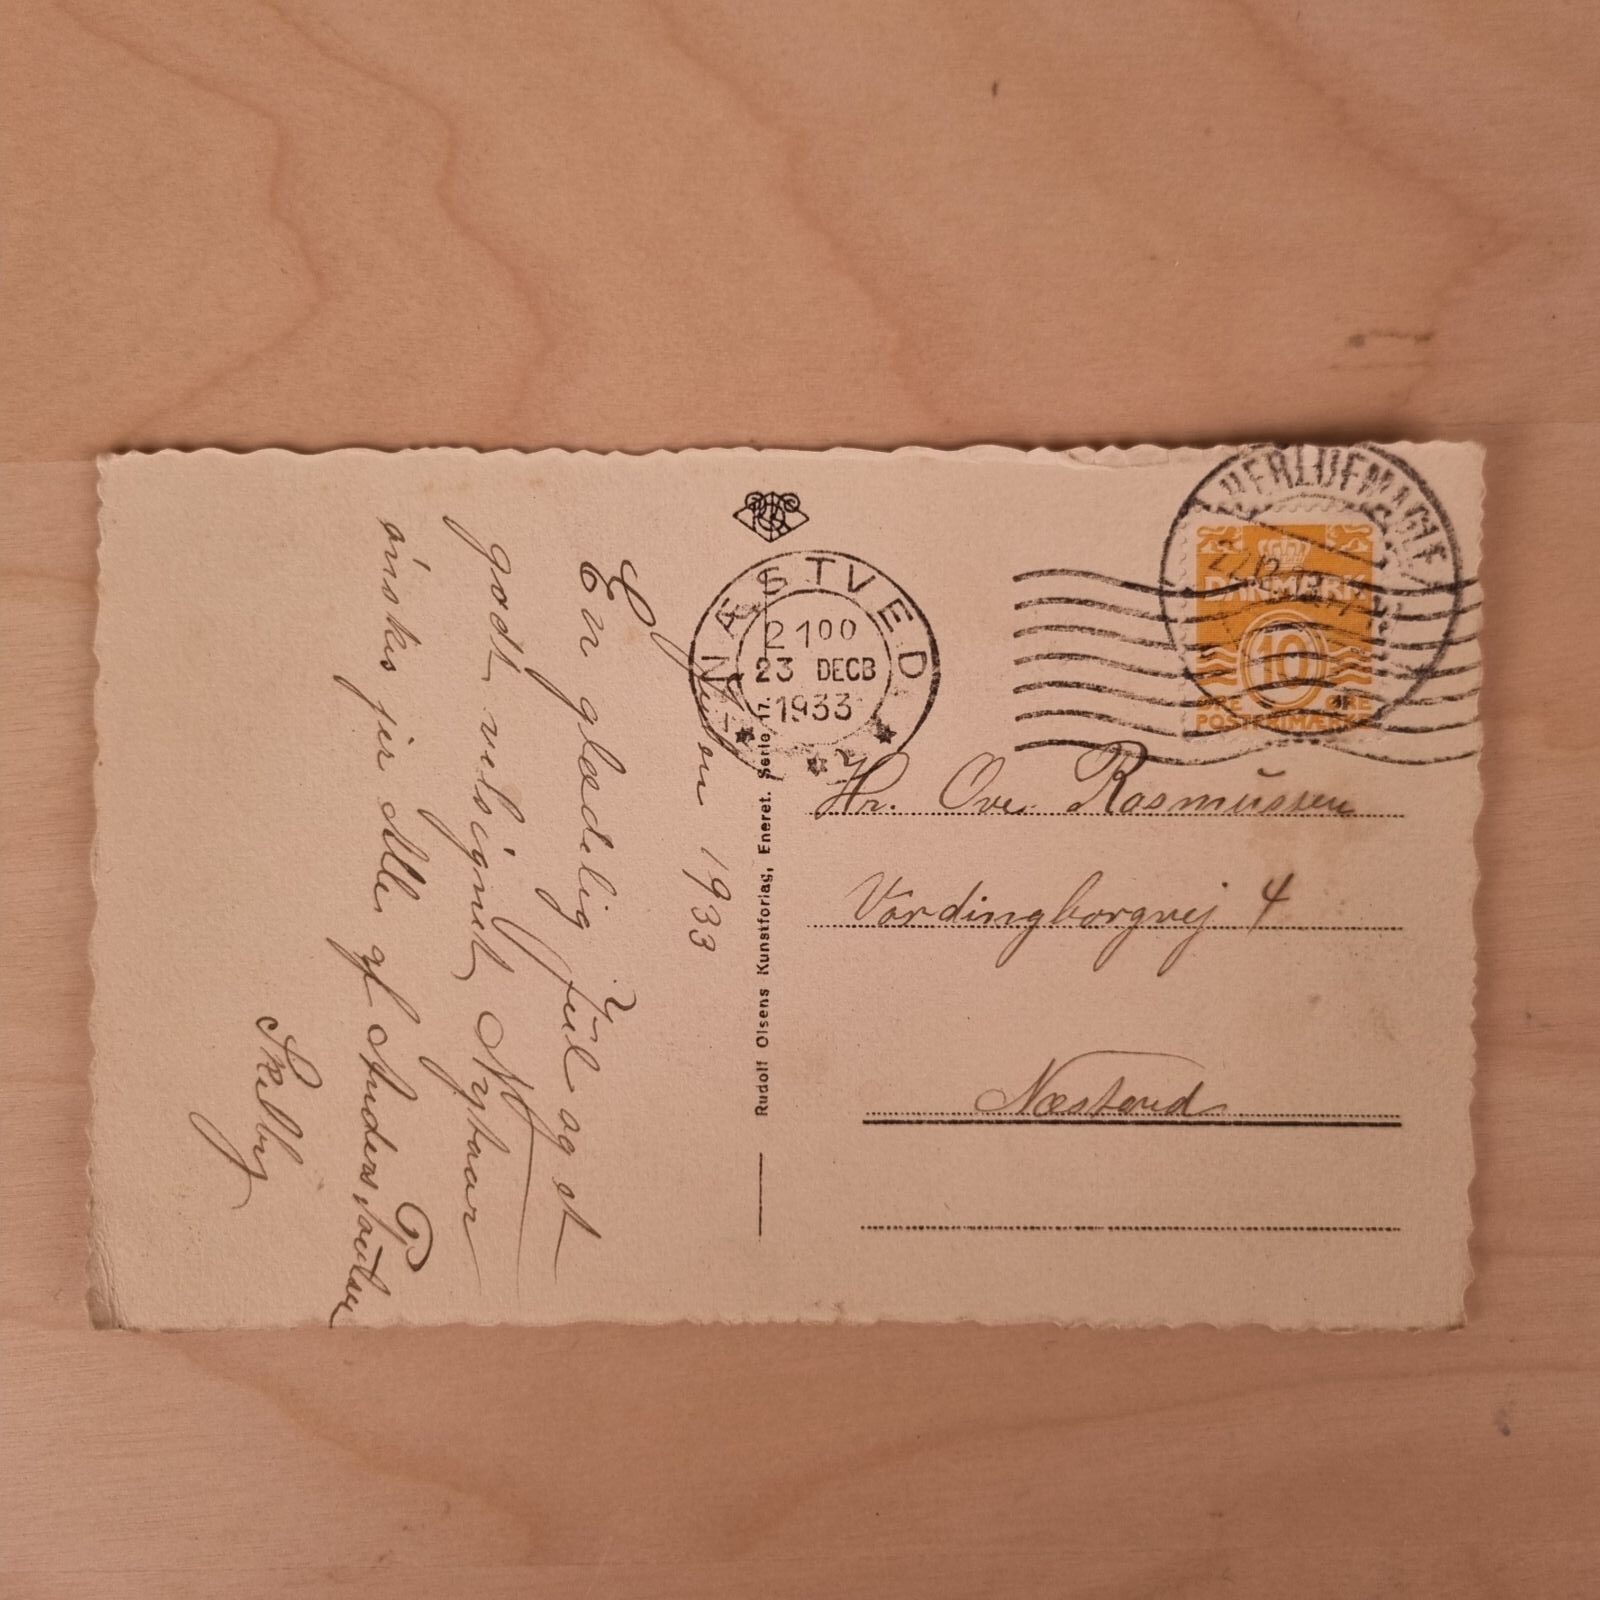 Julen 1933
En glædelig Jul og et
godt velsignet Nytaar
ønskes jer Alle af Anders P.
Skelby
Rudolf Olsens Kunstforlag, Eneret. Serie 17.
NÆSTVED
21 00
23 DECB
1933
DANMARK
10
ØRE ØRE
POSTFRIMÆRKE
Hr. Ove Rasmussen
Vordingborgvej 4
Næstved